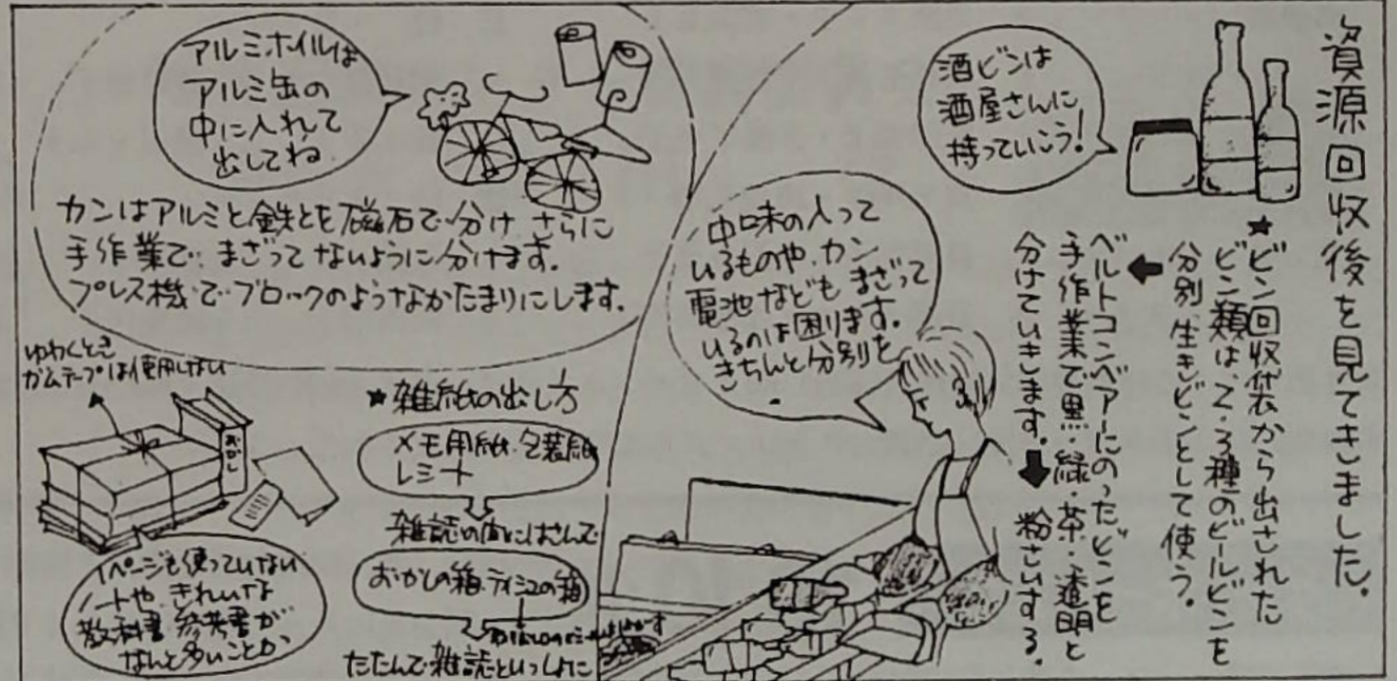 資源回収後を見てきました。
酒ビンは
酒屋さんに
持っていこう!
★ビン回収袋から出された
ビン類は、2、3種のビールビンを
分別、生きビンとして使う。
ベルトコンベアーにのったビンを
手作業で黒・緑・茶・透明と
分けていきます。
粉さいする。
中味の入って
いるものや、カン
電池などもまざって
いるのは困ります。
きちんと分別を
アルミホイルは
アルミ缶の
中に入れて
出してね
カンはアルミと鉄とを磁石で分け、さらに
手作業で、まざってないように分けます。
プレス機でブロックのようなかたまりにします。
ゆわくとき
ガムテープは使用しない
おかし
1ページも使っていない
ノートや、きれいな
教科書、参考書が
なんと多いことか
★雑紙の出し方
メモ用紙・包装紙
レシート
雑誌の間にはさんで
おかしの箱・ティシュの箱
たたんで雑誌といっしょに